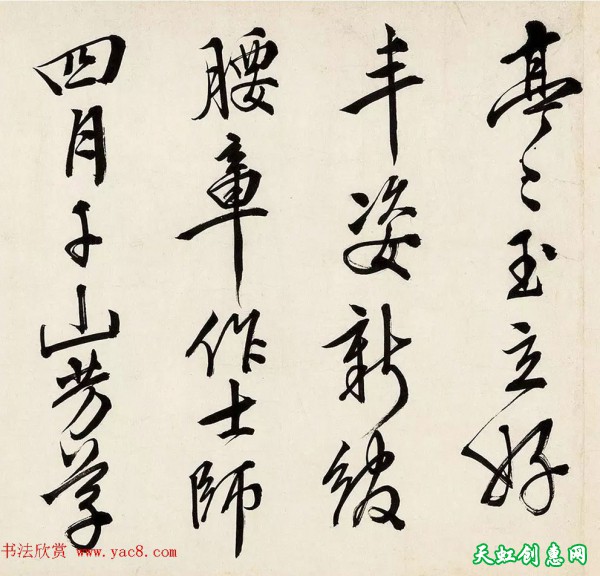 亭〻玉立好
丰姿新綬
腰章作士師
四月千山芳草
书法欣赏 www.yac8.com
天虹创惠网